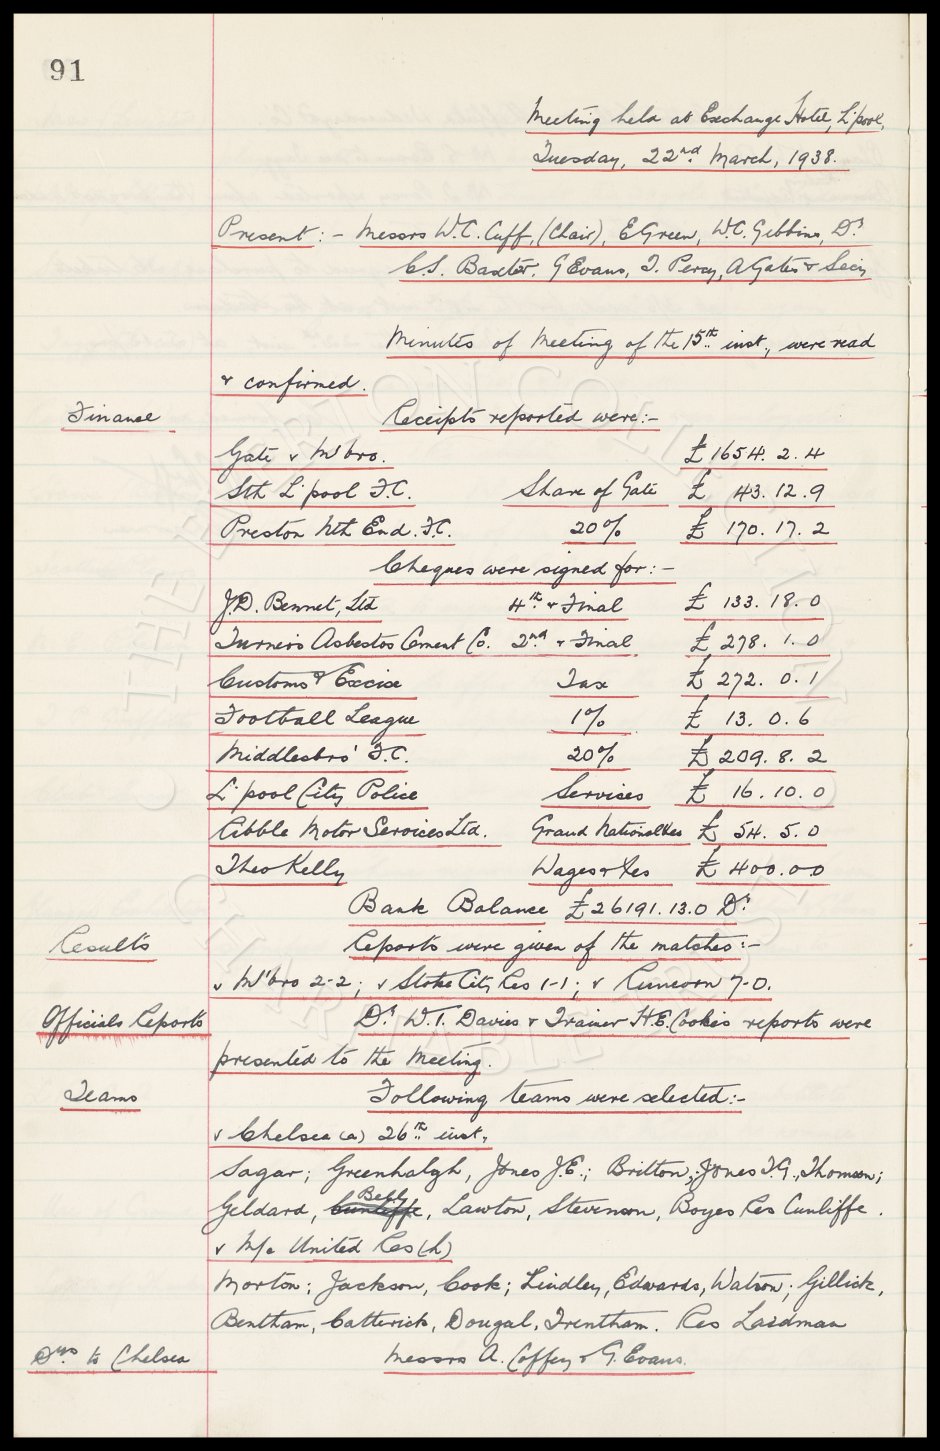 91
Meeting held at Exchange Hotel, L'pool,
Tuesday, 22nd March, 1938.
Present:- Messrs W.C. Cuff, (Chair), E Green, W.C. Gibbins, Dr
C.S. Baxter, G Evans, T. Percy, A Gates & Secy
Minutes of Meeting of the 15th inst., were read
& confirmed.
Finance Receipts reported were:-
Gate v M'bro. £1654. 2. 4
Sth L'pool F.C. Share of Gate £ 43. 12. 9
Preston Nth End. F.C. 20% £ 170. 17. 2
Cheques were signed for:-
J.D. Bennet, Ltd 4th & Final £ 133. 18. 0
Turners Asbestos Cement Co. 2nd & Final £ 278. 1. 0
Customs & Excise Tax £ 272. 0. 1
Football League 1% £ 13. 0. 6
Middlesbro' F.C. 20% £ 209. 8. 2
L'pool City Police Services £ 16. 10. 0
Ribble Motor Services Ltd. Grand National £ 54. 5. 0
Theo Kelly Wages & Xes £ 400. 0 0
Bank Balance £26191. 13. 0 Dr
Results Reports were given of the matches:-
v M'bro 2-2; v Stoke City Res 1-1; v Runcorn 7-0.
Officials Reports Dr W.T. Davies & Trainer H.E. Cooke's reports were
presented to the Meeting.
Teams Following teams were selected:-
v Chelsea (a) 26th inst.
Sagar; Greenhalgh, Jones J.E.; Britton; Jones T.G., Thomson;
Geldard, Cunliffe Bell, Lawton, Stevenson, Boyes Res Cunliffe.
v M/c United Res (h)
Morton; Jackson, Cook; Lindley, Edwards, Watson; Gillick,
Bentham, Catterick, Dougal, Trentham. Res Laidman
Drs to Chelsea Messrs A. Coffey & G. Evans.
© THE EVERTON COLLECTION CHARITABLE TRUST